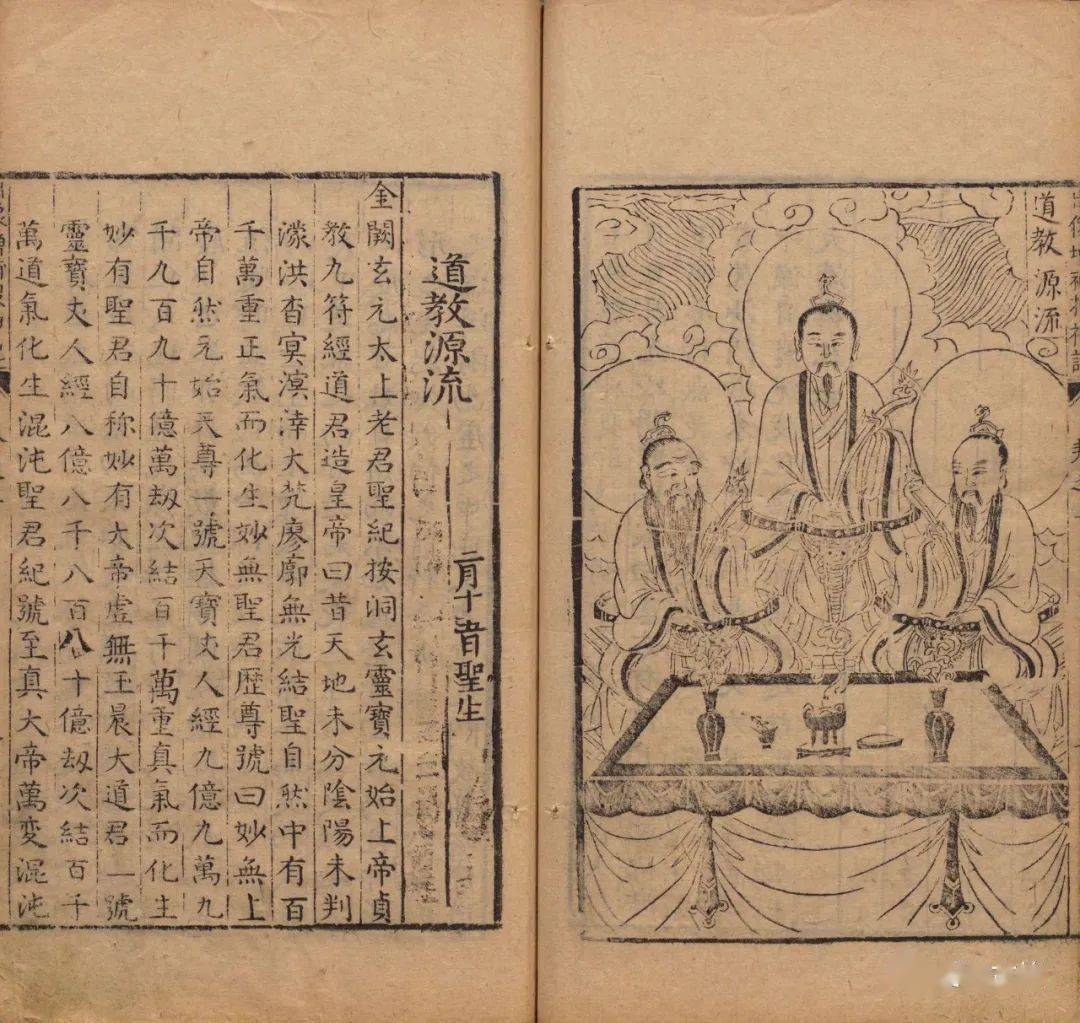 道教源流
道教源流
二月十五日聖生
金闕玄元太上老君聖紀按洞玄靈寶元始上帝貞
教九符經道君造皇帝曰昔天地未分陰陽未判
濛洪杳冥溟涬大梵廖廓無光結聖自然中有百
千萬重正氣而化生妙無聖君歷尊號曰妙無上
帝自然元始天尊一號天寶丈人經九億九萬九
千九百九十億萬劫次結百千萬重真氣而化生
妙有聖君自称妙有大帝虛無玉晨大道君一號
靈寶丈人經八億八千八百八十億劫次結百千
萬道氣化生混沌聖君紀號至真大帝萬变混沌